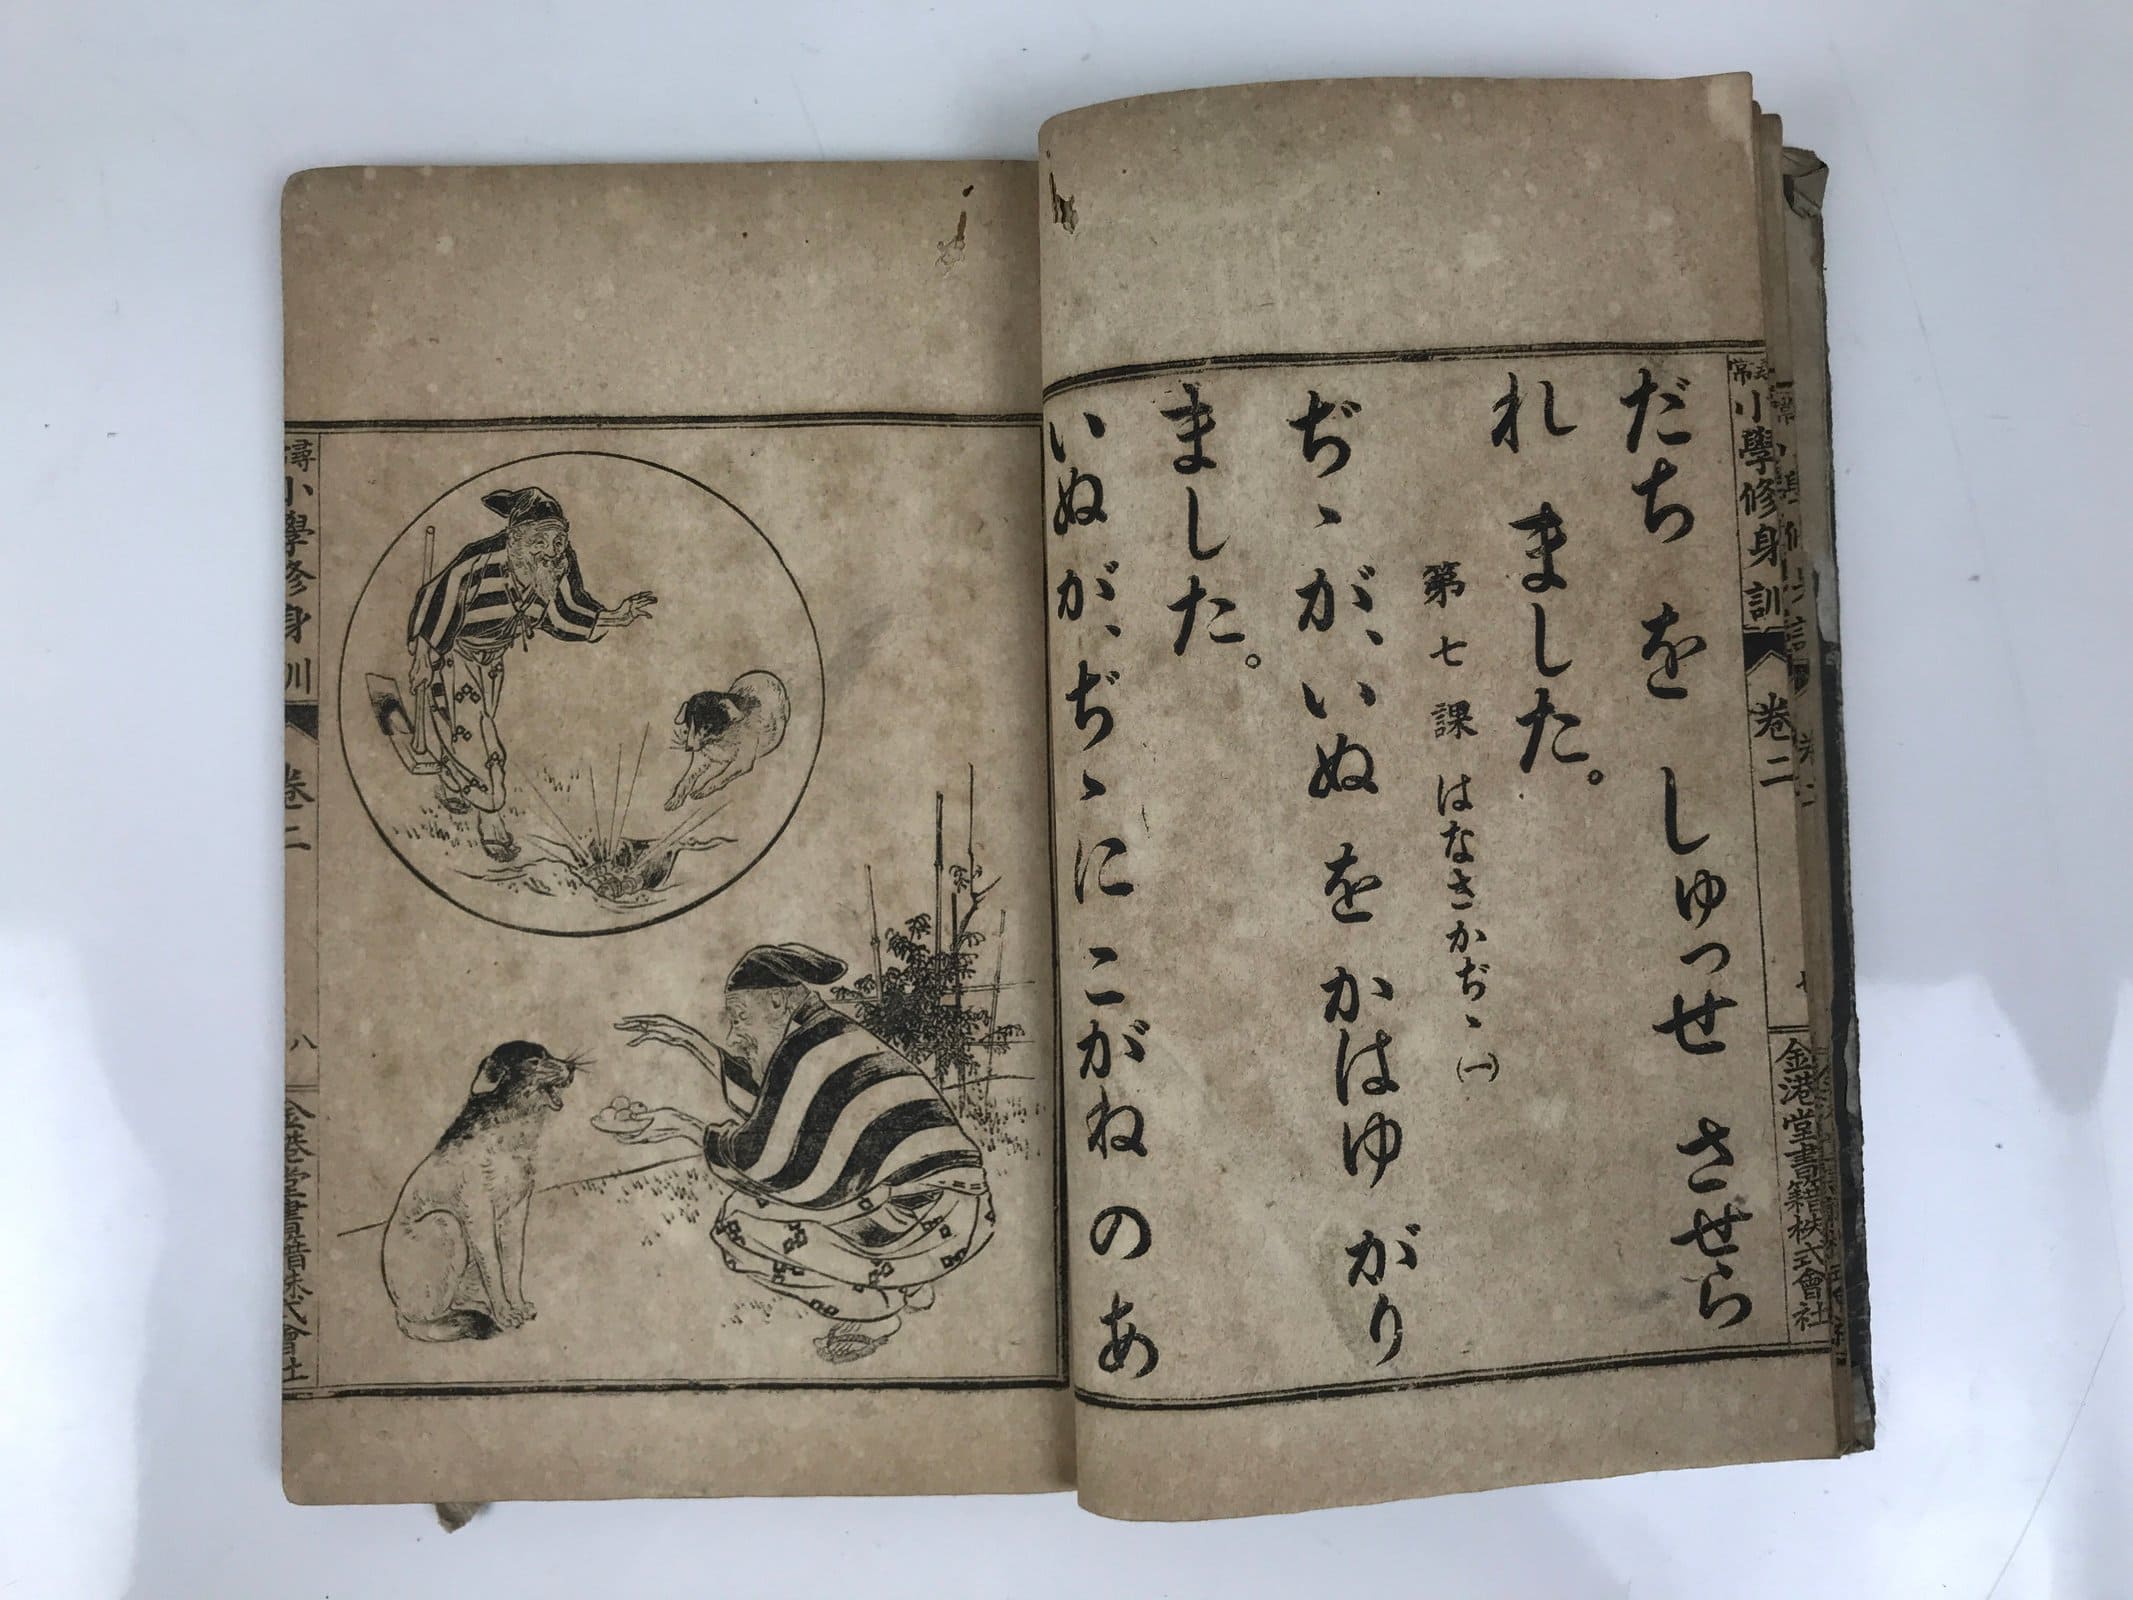 尋常小學修身訓 卷二 七 金港堂書籍株式會社
だち を しゅっせ させら
れ ました。
第七課 はなさかぢゝ(一)
ぢゝが、いぬ を かはゆ がり
ました。
いぬが、ぢゝに こがね の あ
尋 小學修身訓 卷二 八 金港堂書籍株式會社